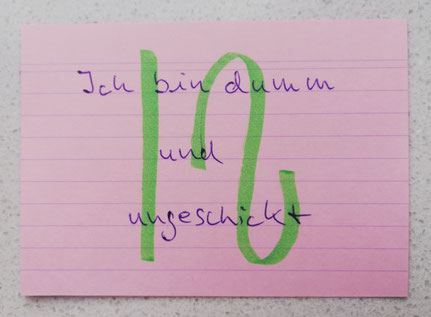 Ich bin dumm
und
ungeschickt